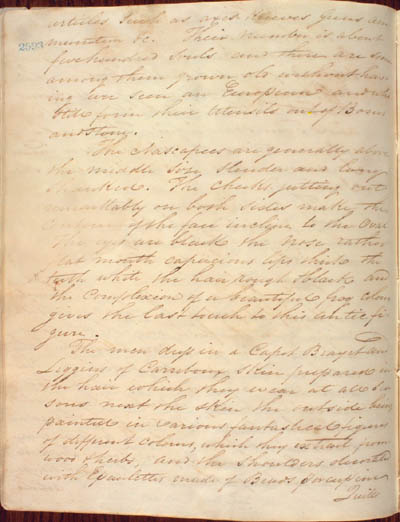 articles such as axes knives guns am
2593
munition &c. Their number is about
five hundred souls and there are some
among them grown old without hav
ing ever seen an European and who
still form their Utensils out of Bone
and Stone.
The Nascapees are generally above
the middle size slender and long
shanked. The Cheeks jutting out
remarkably on both sides make the
of the face incline to the Oval
The eyes are black the nose rather
flat mouth capacious lips thick the
teeth white the hair rough & black and
the Complexion of a beautiful frog colour
gives the last touch to this antic fi
gure.
The men dress in a Capot Brayet and
Liggins of Carriboux skin prepared in
the hair which they wear at all Sea
sons next the skin the outside being
painted in various fantastical figures
of different colours, which they extract from
wood & herbs, and the shoulders
with Epaulettes made of Beads, Porcupine
Quills